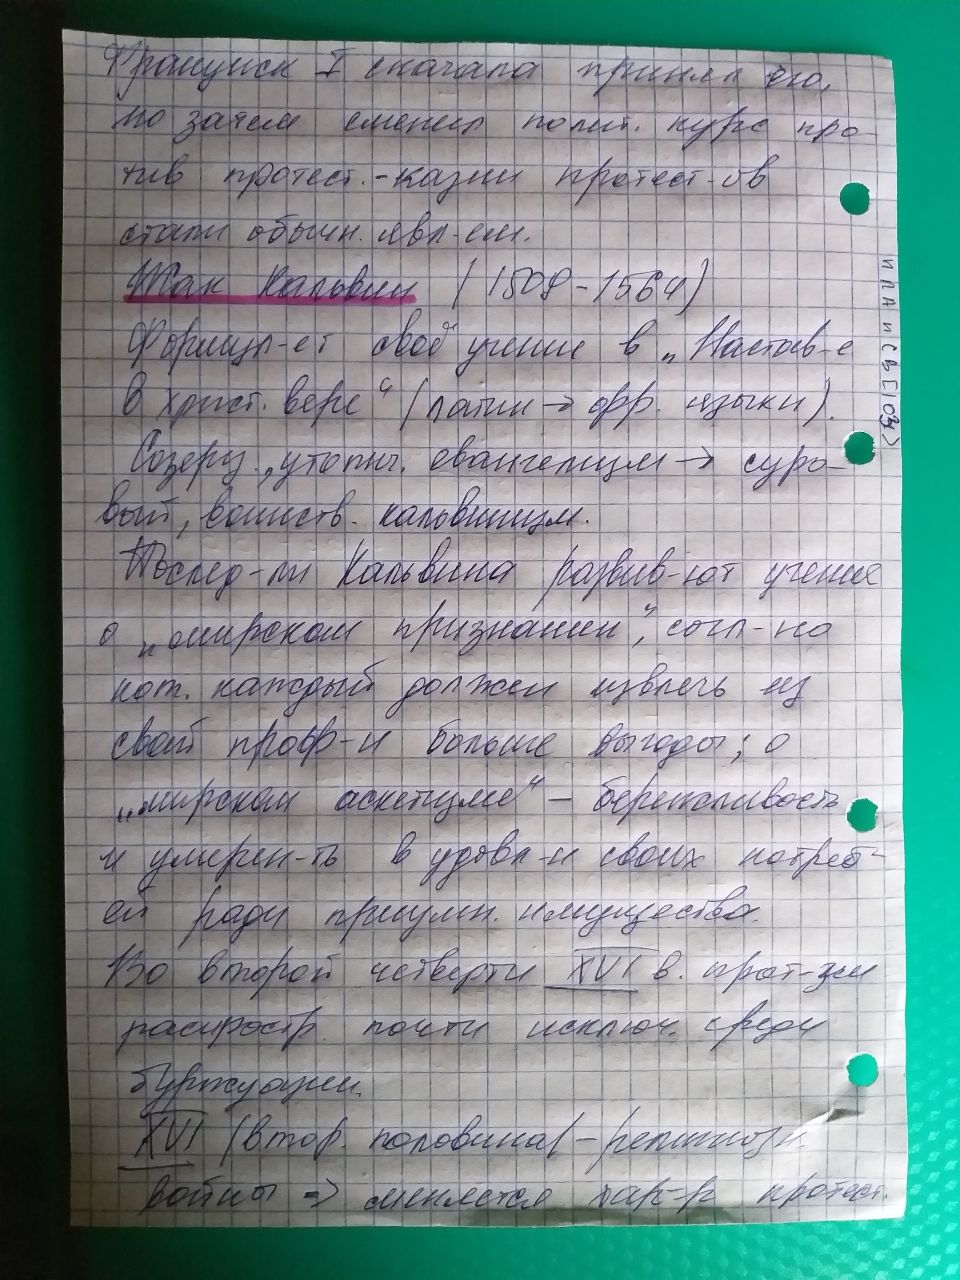 Франциск I сначала принял его,
но затем сменил полит. курс про-
тив протест. - казни протест-ов
стали обычн. явл-ем.
Жан Кальвин (1509-1564)
Формул-ет своё учение в „Настав-е
в христ. вере“ (латин → фр. языки).
Созерц., утопич. евангелизм → суро-
вый, воинств. кальвинизм.
Послед-ли Кальвина развив-ют учение
о „мирском призвании“, согл-но
кот. каждый должен извлечь из
свой проф-и больше выгоды; о
„мирском аскетизме“ - бережливость
и умерен-ть в удовл-и своих потреб-
ей ради приумн. имущества.
Во второй четверти XVI в. прот-зм
распростр. почти исключ. среди
буржуазии.
XVI (втор. половина) - религиозн.
войны => меняется хар-р протест.